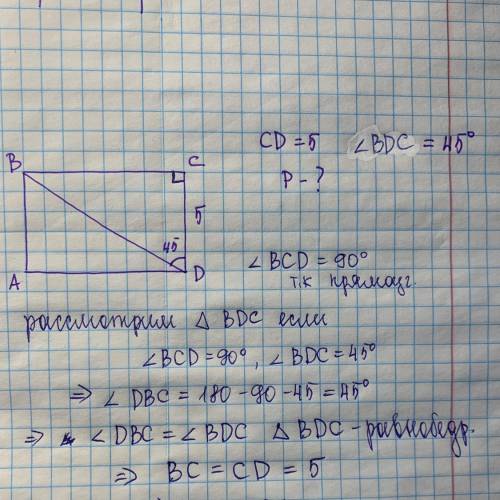 CD = 5 ∠BDC = 45°
P - ?
B C
5
45
A D
∠BCD = 90°
т.к прямоуг.
рассмотрим △ BDC если
∠BCD = 90°, ∠BDC = 45°
⇒ ∠DBC = 180 - 90 - 45 = 45°
⇒ ∠DBC = ∠BDC △ BDC - равнобедр.
⇒ BC = CD = 5